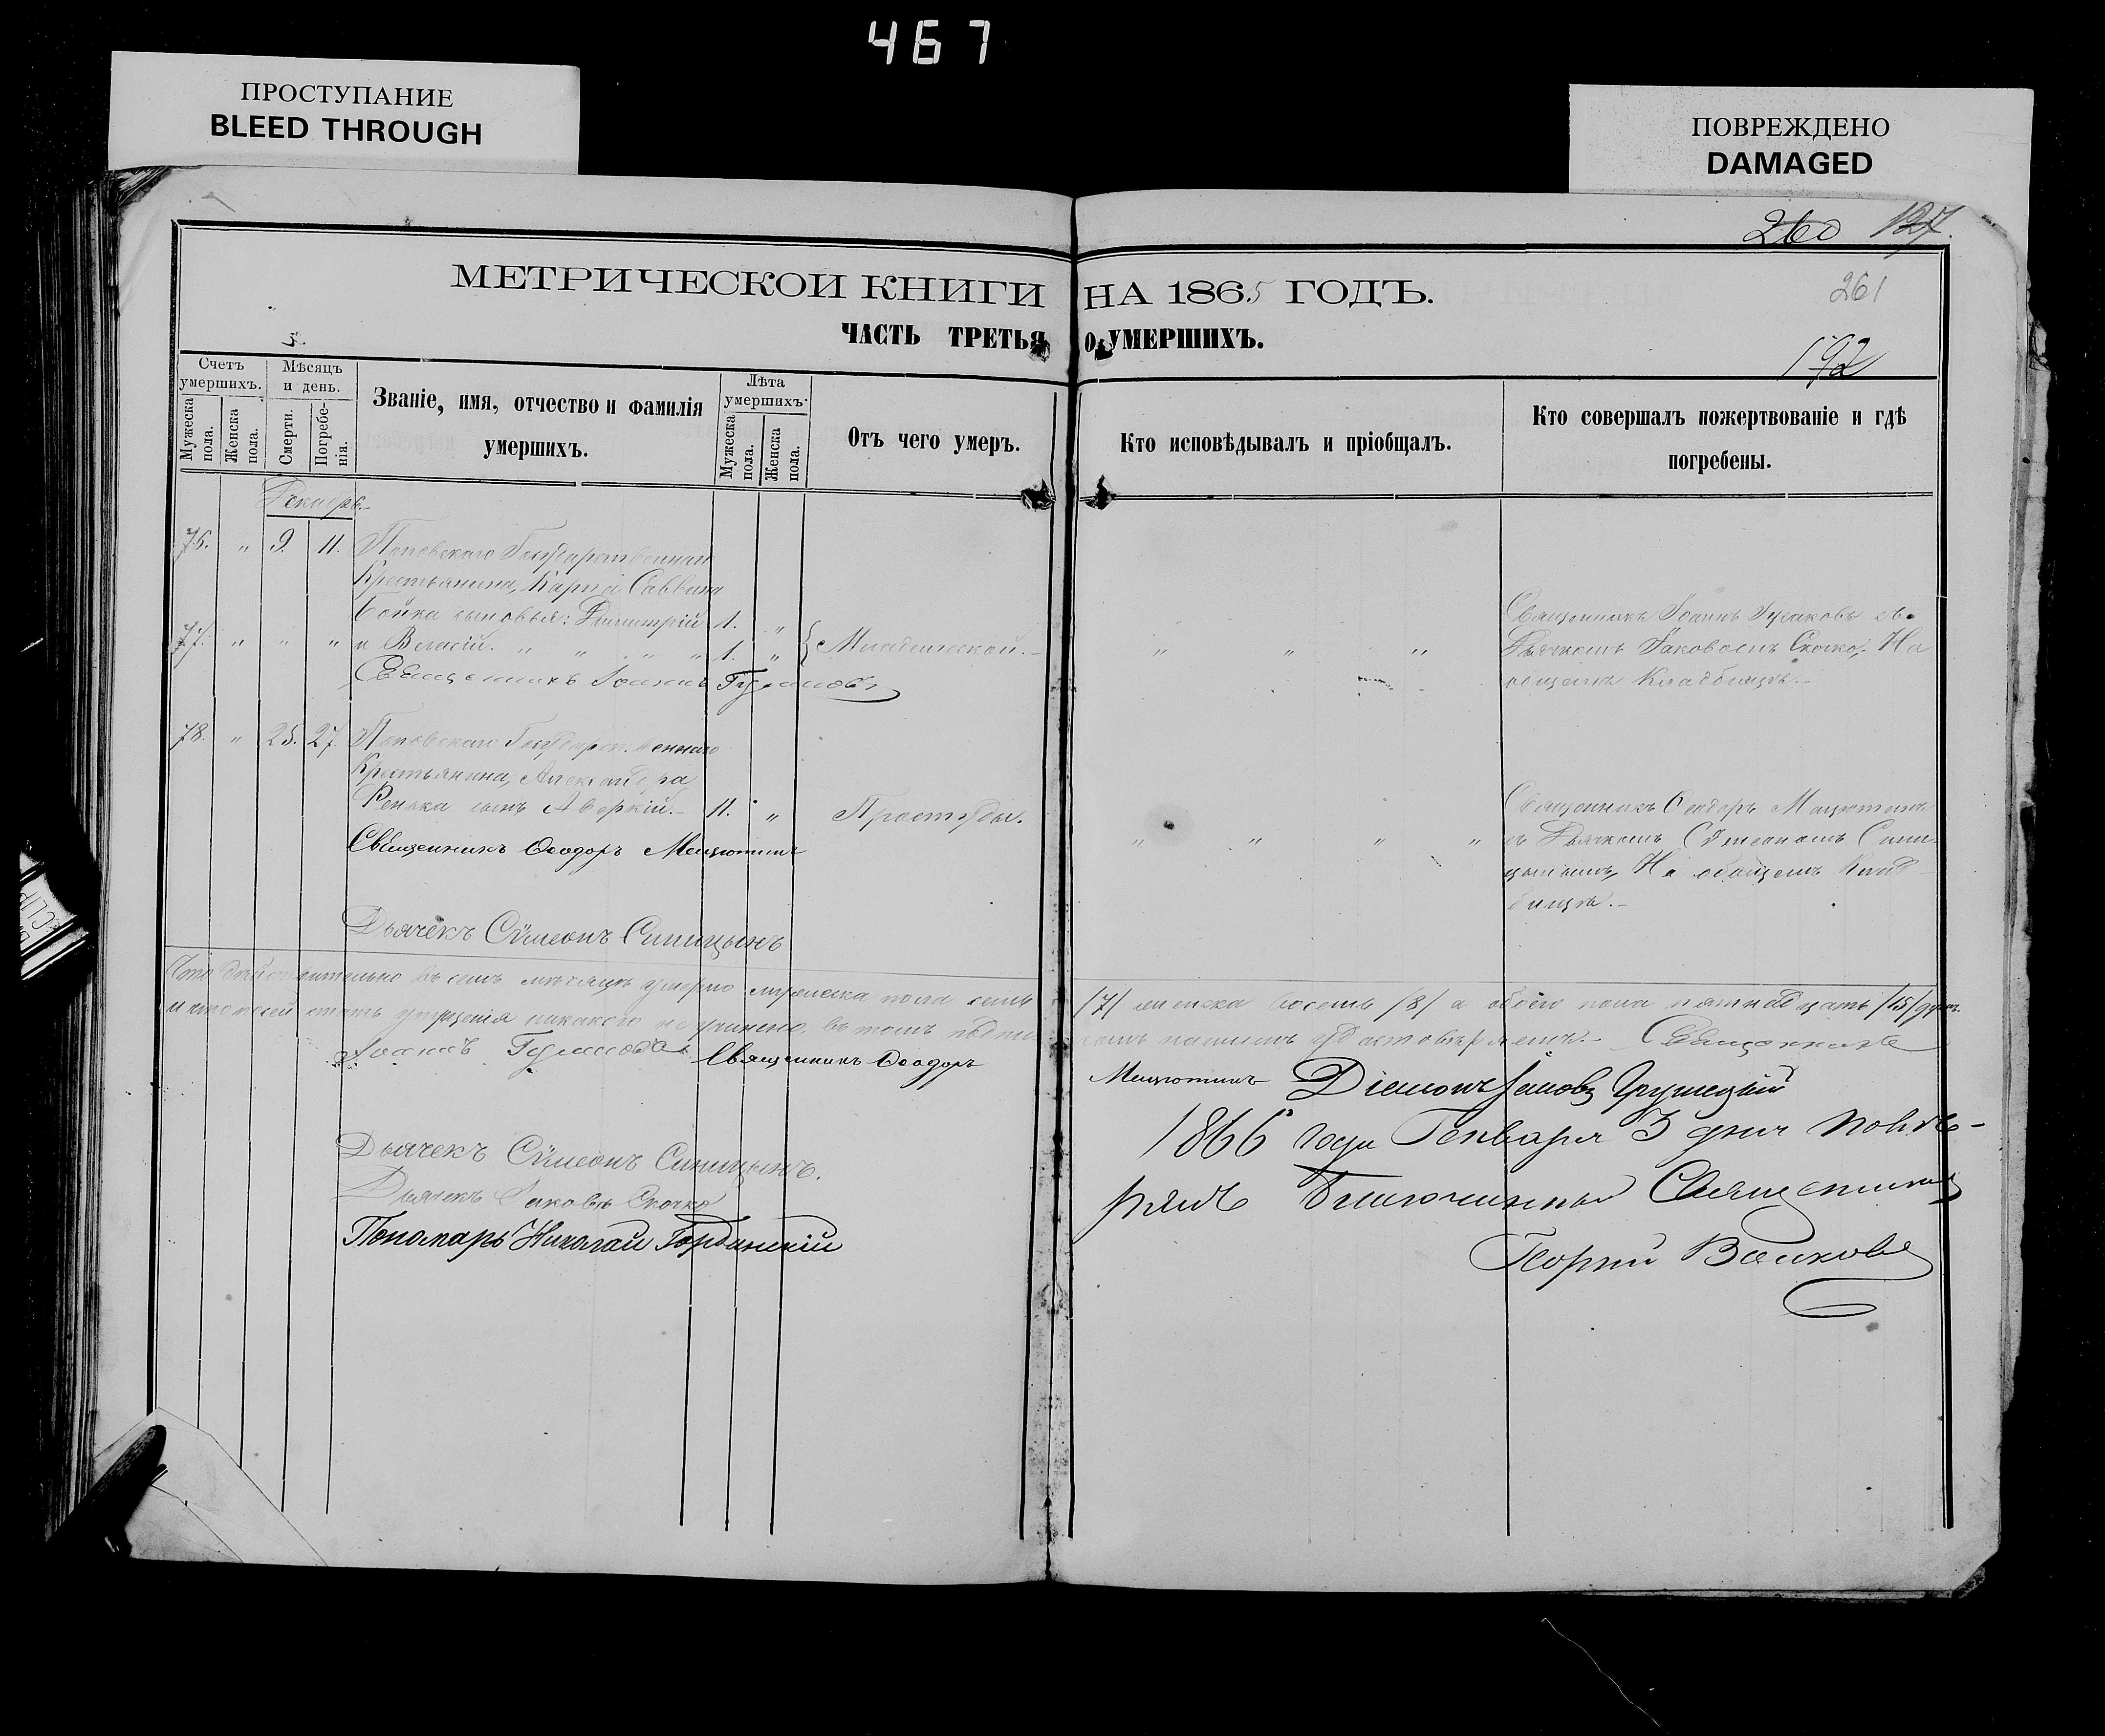 467
ПРОСТУПАНИЕ
BLEED THROUGH
ПОВРЕЖДЕНО
DAMAGED
260 127.
261
192
МЕТРИЧЕСКОЙ КНИГИ НА 1865 ГОДЪ.
ЧАСТЬ ТРЕТЬЯ О УМЕРШИХЪ.
Счетъ умершихъ.
Мужеска пола.
Женска пола.
Мѣсяцъ и день.
Смерти.
Погребенія.
Званіе, имя, отчество и фамилія умершихъ.
Лѣта умершихъ.
Мужеска пола.
Женска пола.
Отъ чего умеръ.
Кто исповѣдывалъ и пріобщалъ.
Кто совершалъ пожертвованіе и гдѣ погребены.
Декабрь.
76. " 9. 11. Поповскаго Государственнаго
Крестьянина, Карпа Саввина
Бойка сыновья: Димитрій 1. "
77. " " " и Власій. " " " " 1. " Младенческой.
" " "
Священникъ Іоаннъ съ
Дьячкомъ Іаковомъ Скочко, На
общемъ Кладбищѣ.
Священникъ Іоаннъ
78. " 25. 27. Поповскаго Государственнаго
Крестьянина, Александра
сынъ Аверкій. 11. " Простуды.
" " " "
Священникъ Ѳеодоръ
съ Дьячкомъ Сѵмеономъ Сини-
цынымъ, На общемъ Клад-
бищѣ.
Священникъ Ѳеодоръ
Дьячекъ Сѵмеонъ Синицынъ
Что действительно въ семъ мѣсяцѣ умерло мужеска пола семь /7/ женска восемь /8/ а обоего пола пятнадцать /15/ душъ.
и въ томъ нашимъ удостовѣряемъ. Священникъ
Іоаннъ Священникъ Ѳеодоръ
Діаконъ Іаковъ
Дьячекъ Сѵмеонъ Синицынъ.
Дьячекъ Іаковъ Скочко
Пономарь Николай
1866 года Генваря 3 дня повѣ-
рялъ Благочинный Священникъ
Георгій Волковъ